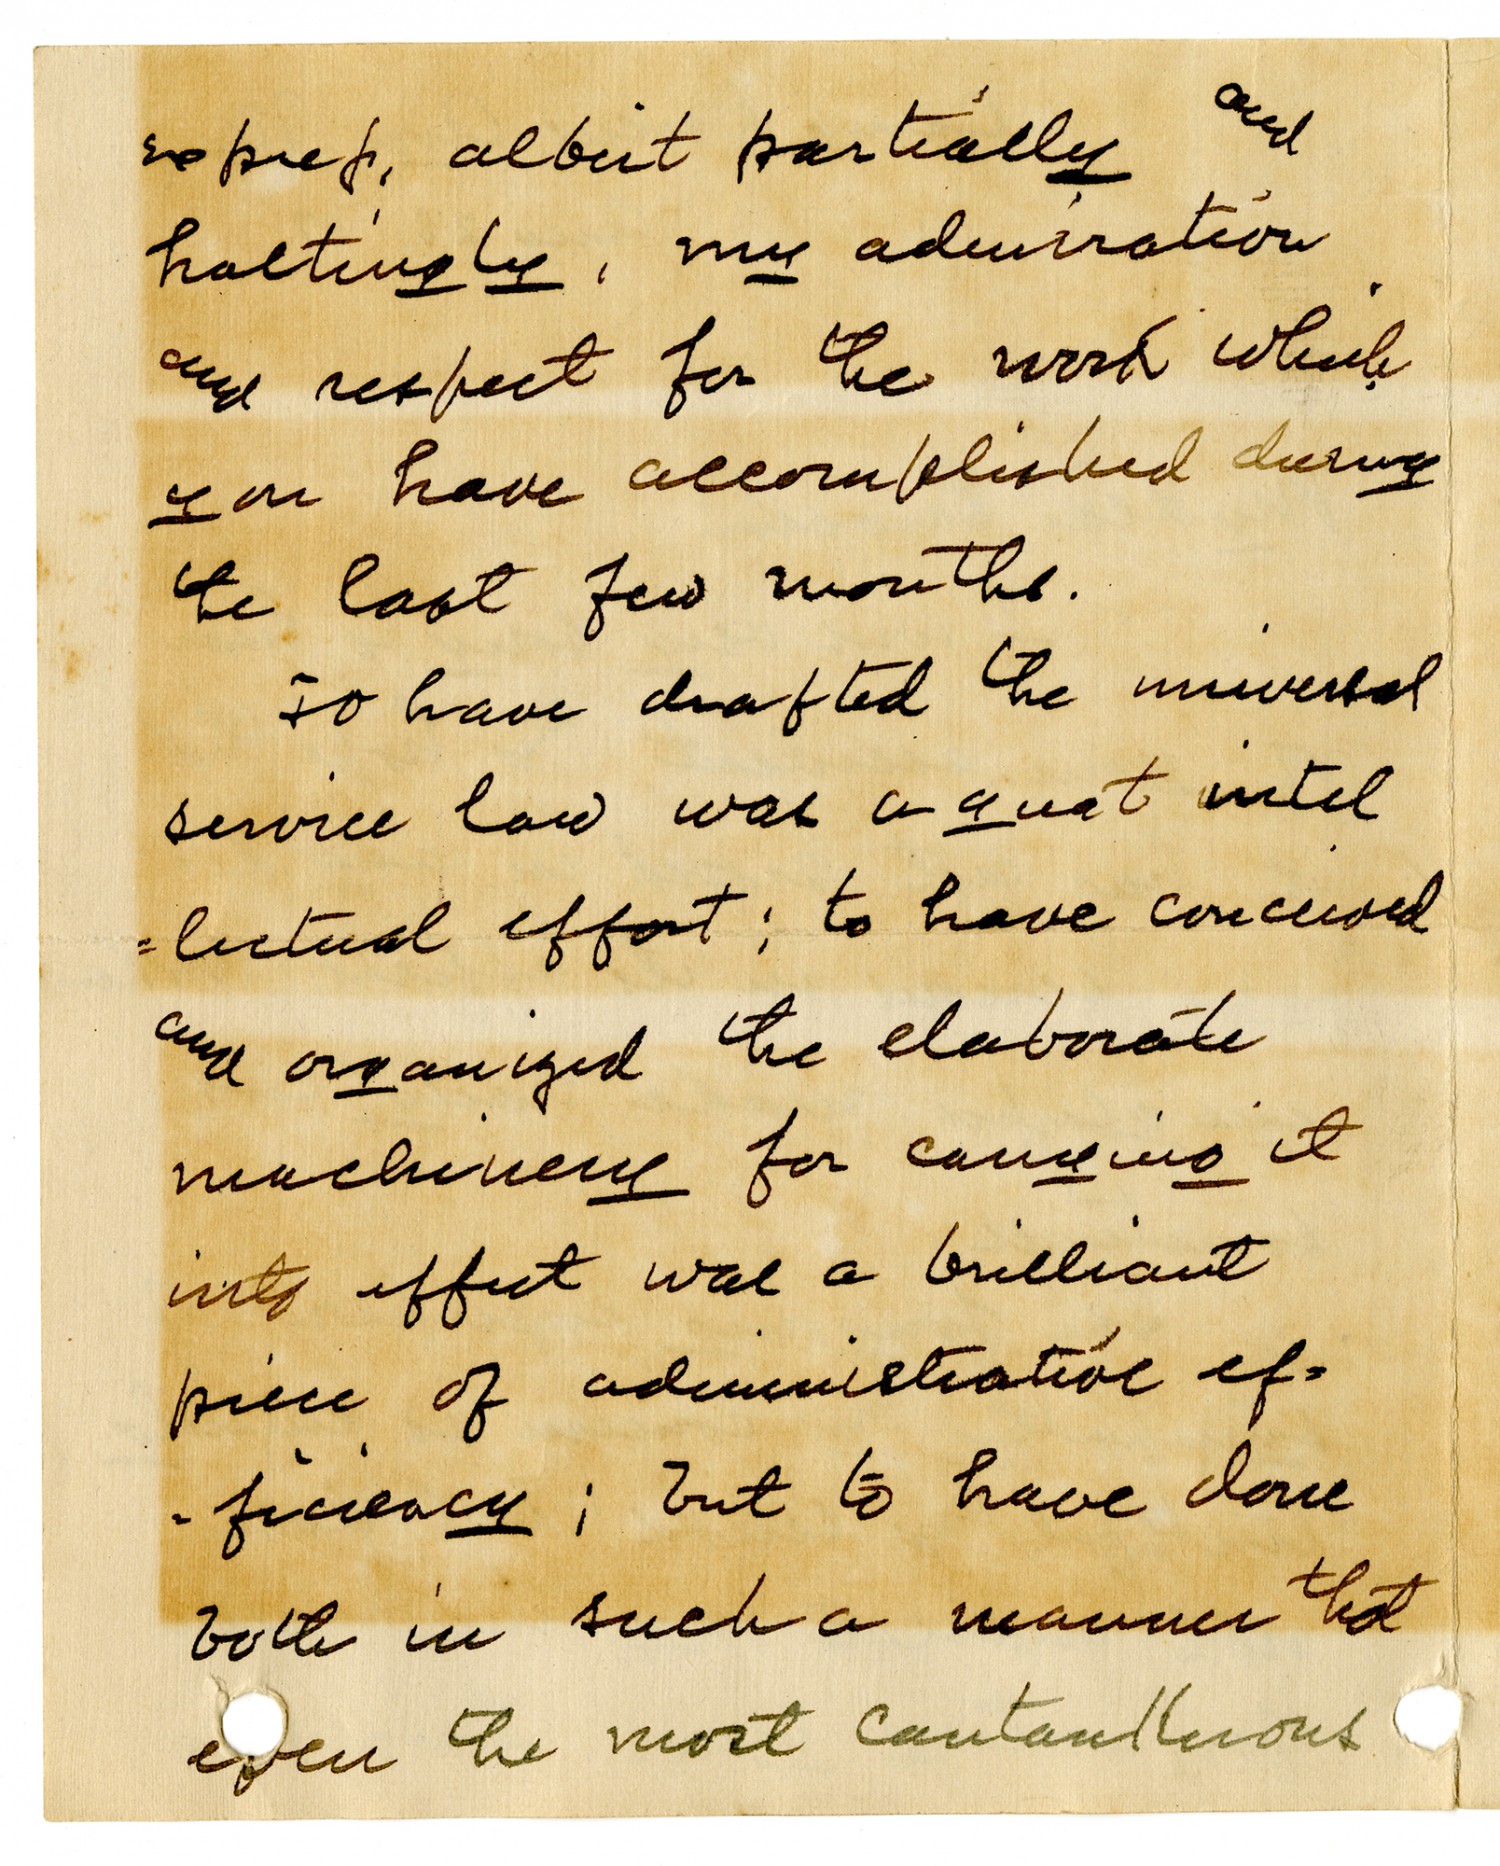 express, albeit partially and
haltingly, my admiration
and respect for the work which
you have accomplished during
the last few months.
To have drafted the universal
service law was a great intel
=lectual effort; to have conceived
and organized the elaborate
machinery for carrying it
into effect was a brilliant
piece of administrative ef=
-ficiency; but to have done
both in such a manner that
even the most cantankerous